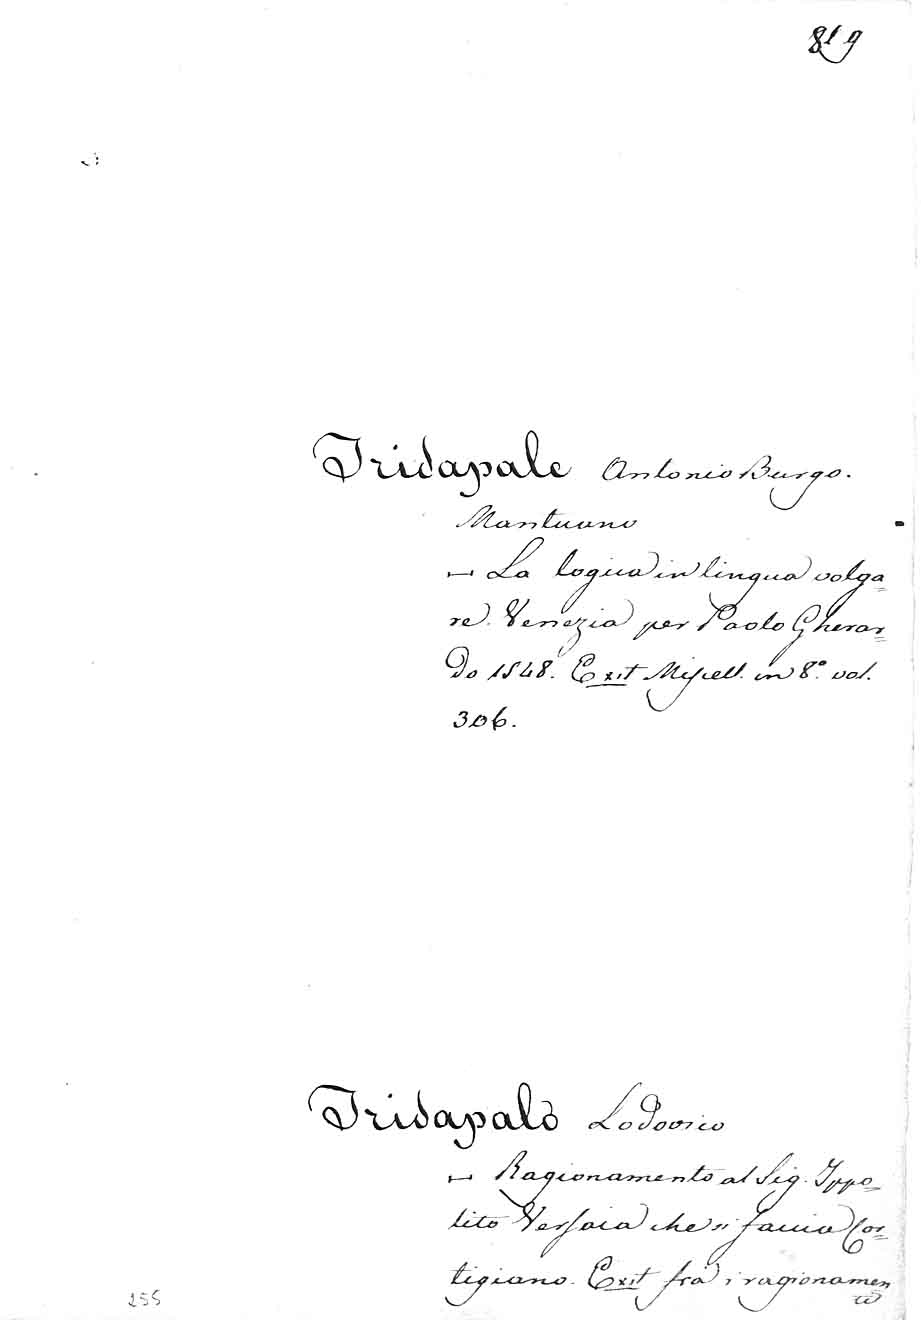 819
Tridapale Antonio Burgo.
Mantuano
— La logica in lingua volga=
re. Venezia per Paolo Gherar=
do 1548. Exit Miscell. in 8.° vol.
306.
Tridapalo Lodovico
— Ragionamento al Sig. Ippo=
lito che si faccia Cor=
tigiano. Exit frà i ragionamen
ti
255